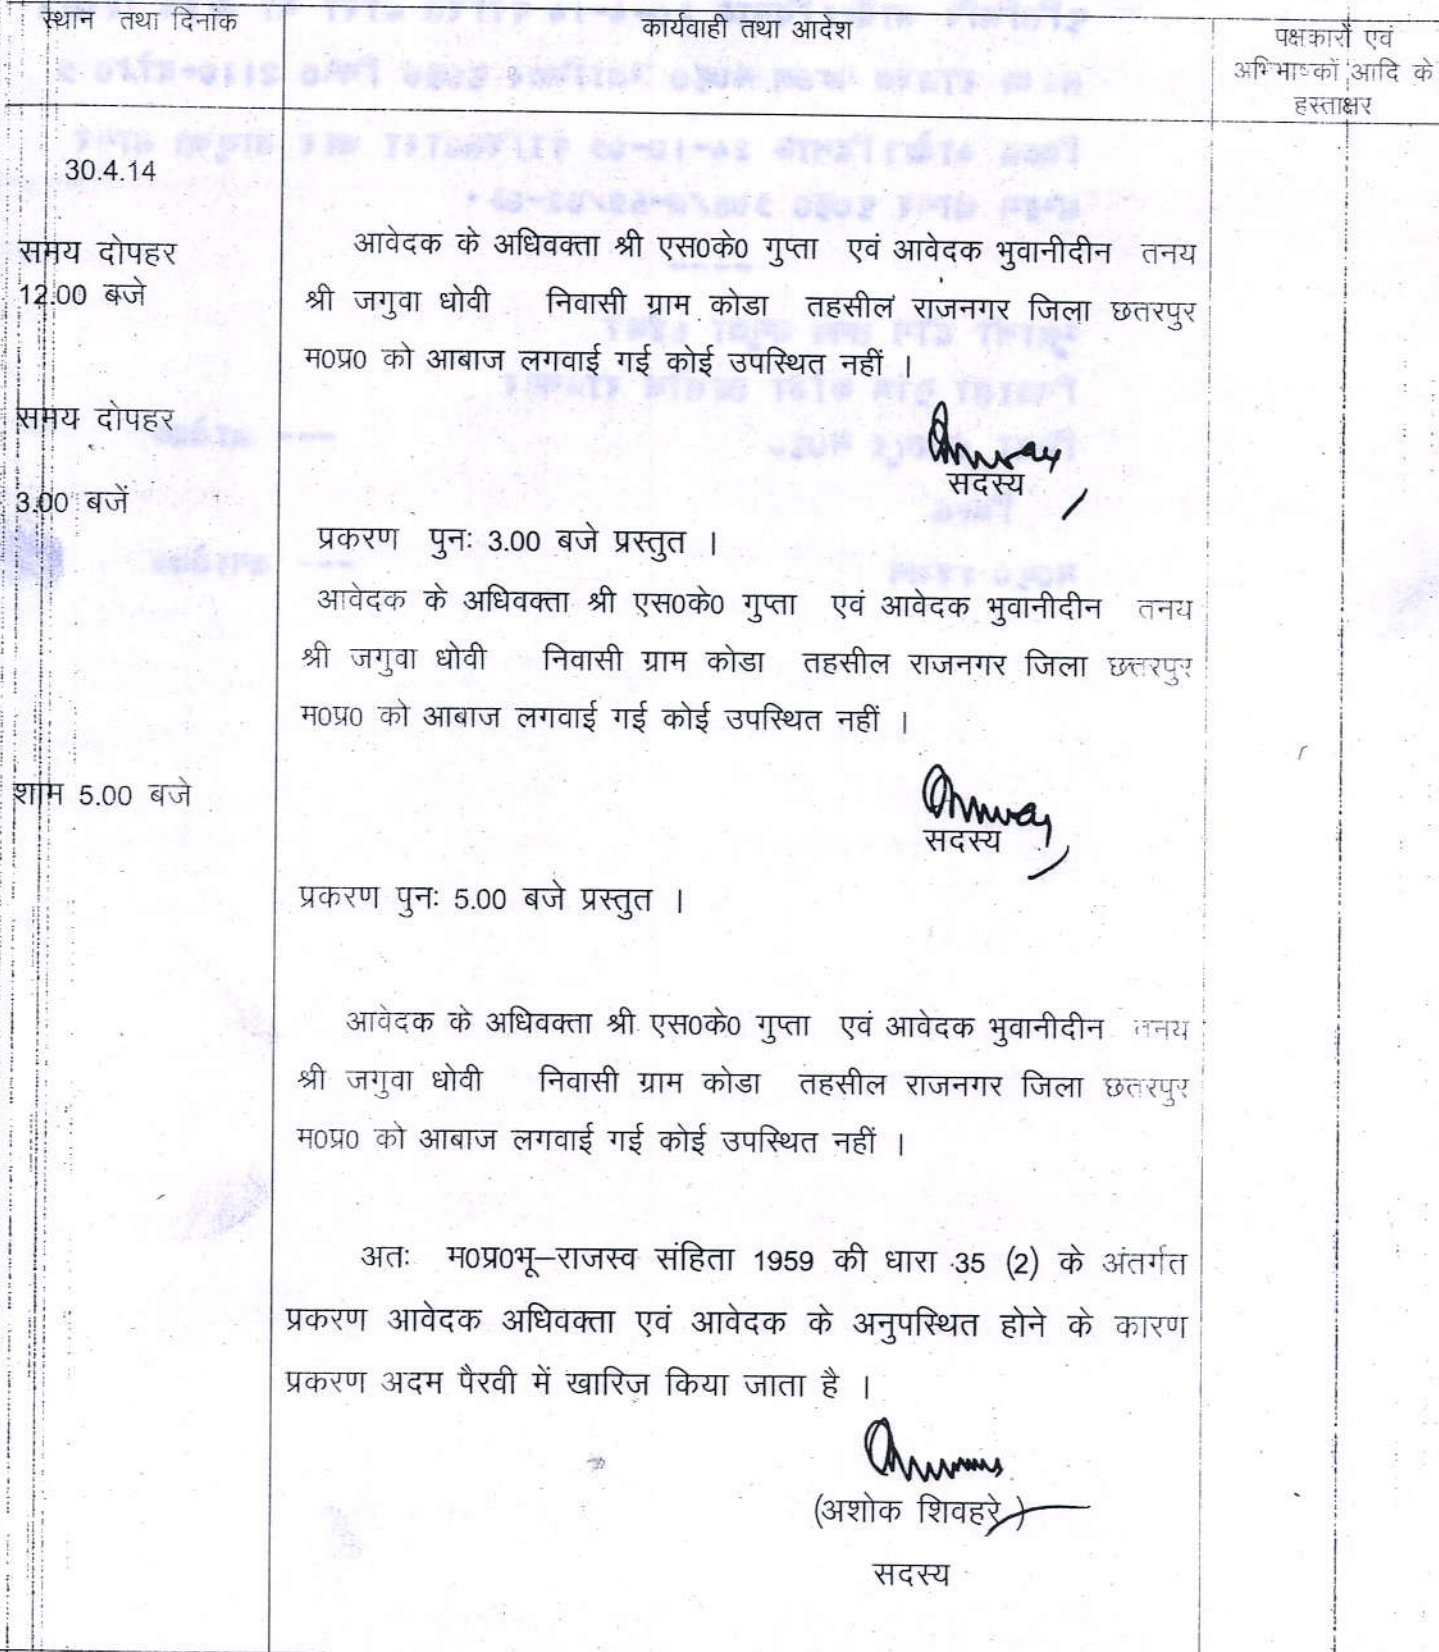 स्थान तथा दिनांक
कार्यवाही तथा आदेश
पक्षकारों एवं
अभिभाषकों आदि के
हस्ताक्षर
30.4.14
समय दोपहर
12.00 बजे
आवेदक के अधिवक्ता श्री एस0के0 गुप्ता एवं आवेदक भुवानीदीन तनय
श्री जगुवा धोवी निवासी ग्राम कोडा तहसील राजनगर जिला छतरपुर
म0प्र0 को आबाज लगवाई गई कोई उपस्थित नहीं ।
सदस्य
समय दोपहर
3.00 बजें
प्रकरण पुनः 3.00 बजे प्रस्तुत ।
आवेदक के अधिवक्ता श्री एस0के0 गुप्ता एवं आवेदक भुवानीदीन तनय
श्री जगुवा धोवी निवासी ग्राम कोडा तहसील राजनगर जिला छतरपुर
म0प्र0 को आबाज लगवाई गई कोई उपस्थित नहीं ।
सदस्य
शाम 5.00 बजे
प्रकरण पुनः 5.00 बजे प्रस्तुत ।
आवेदक के अधिवक्ता श्री एस0के0 गुप्ता एवं आवेदक भुवानीदीन तनय
श्री जगुवा धोवी निवासी ग्राम कोडा तहसील राजनगर जिला छतरपुर
म0प्र0 को आबाज लगवाई गई कोई उपस्थित नहीं ।
अतः म0प्र0भू–राजस्व संहिता 1959 की धारा 35 (2) के अंतर्गत
प्रकरण आवेदक अधिवक्ता एवं आवेदक के अनुपस्थित होने के कारण
प्रकरण अदम पैरवी में खारिज किया जाता है ।
(अशोक शिवहरे )
सदस्य